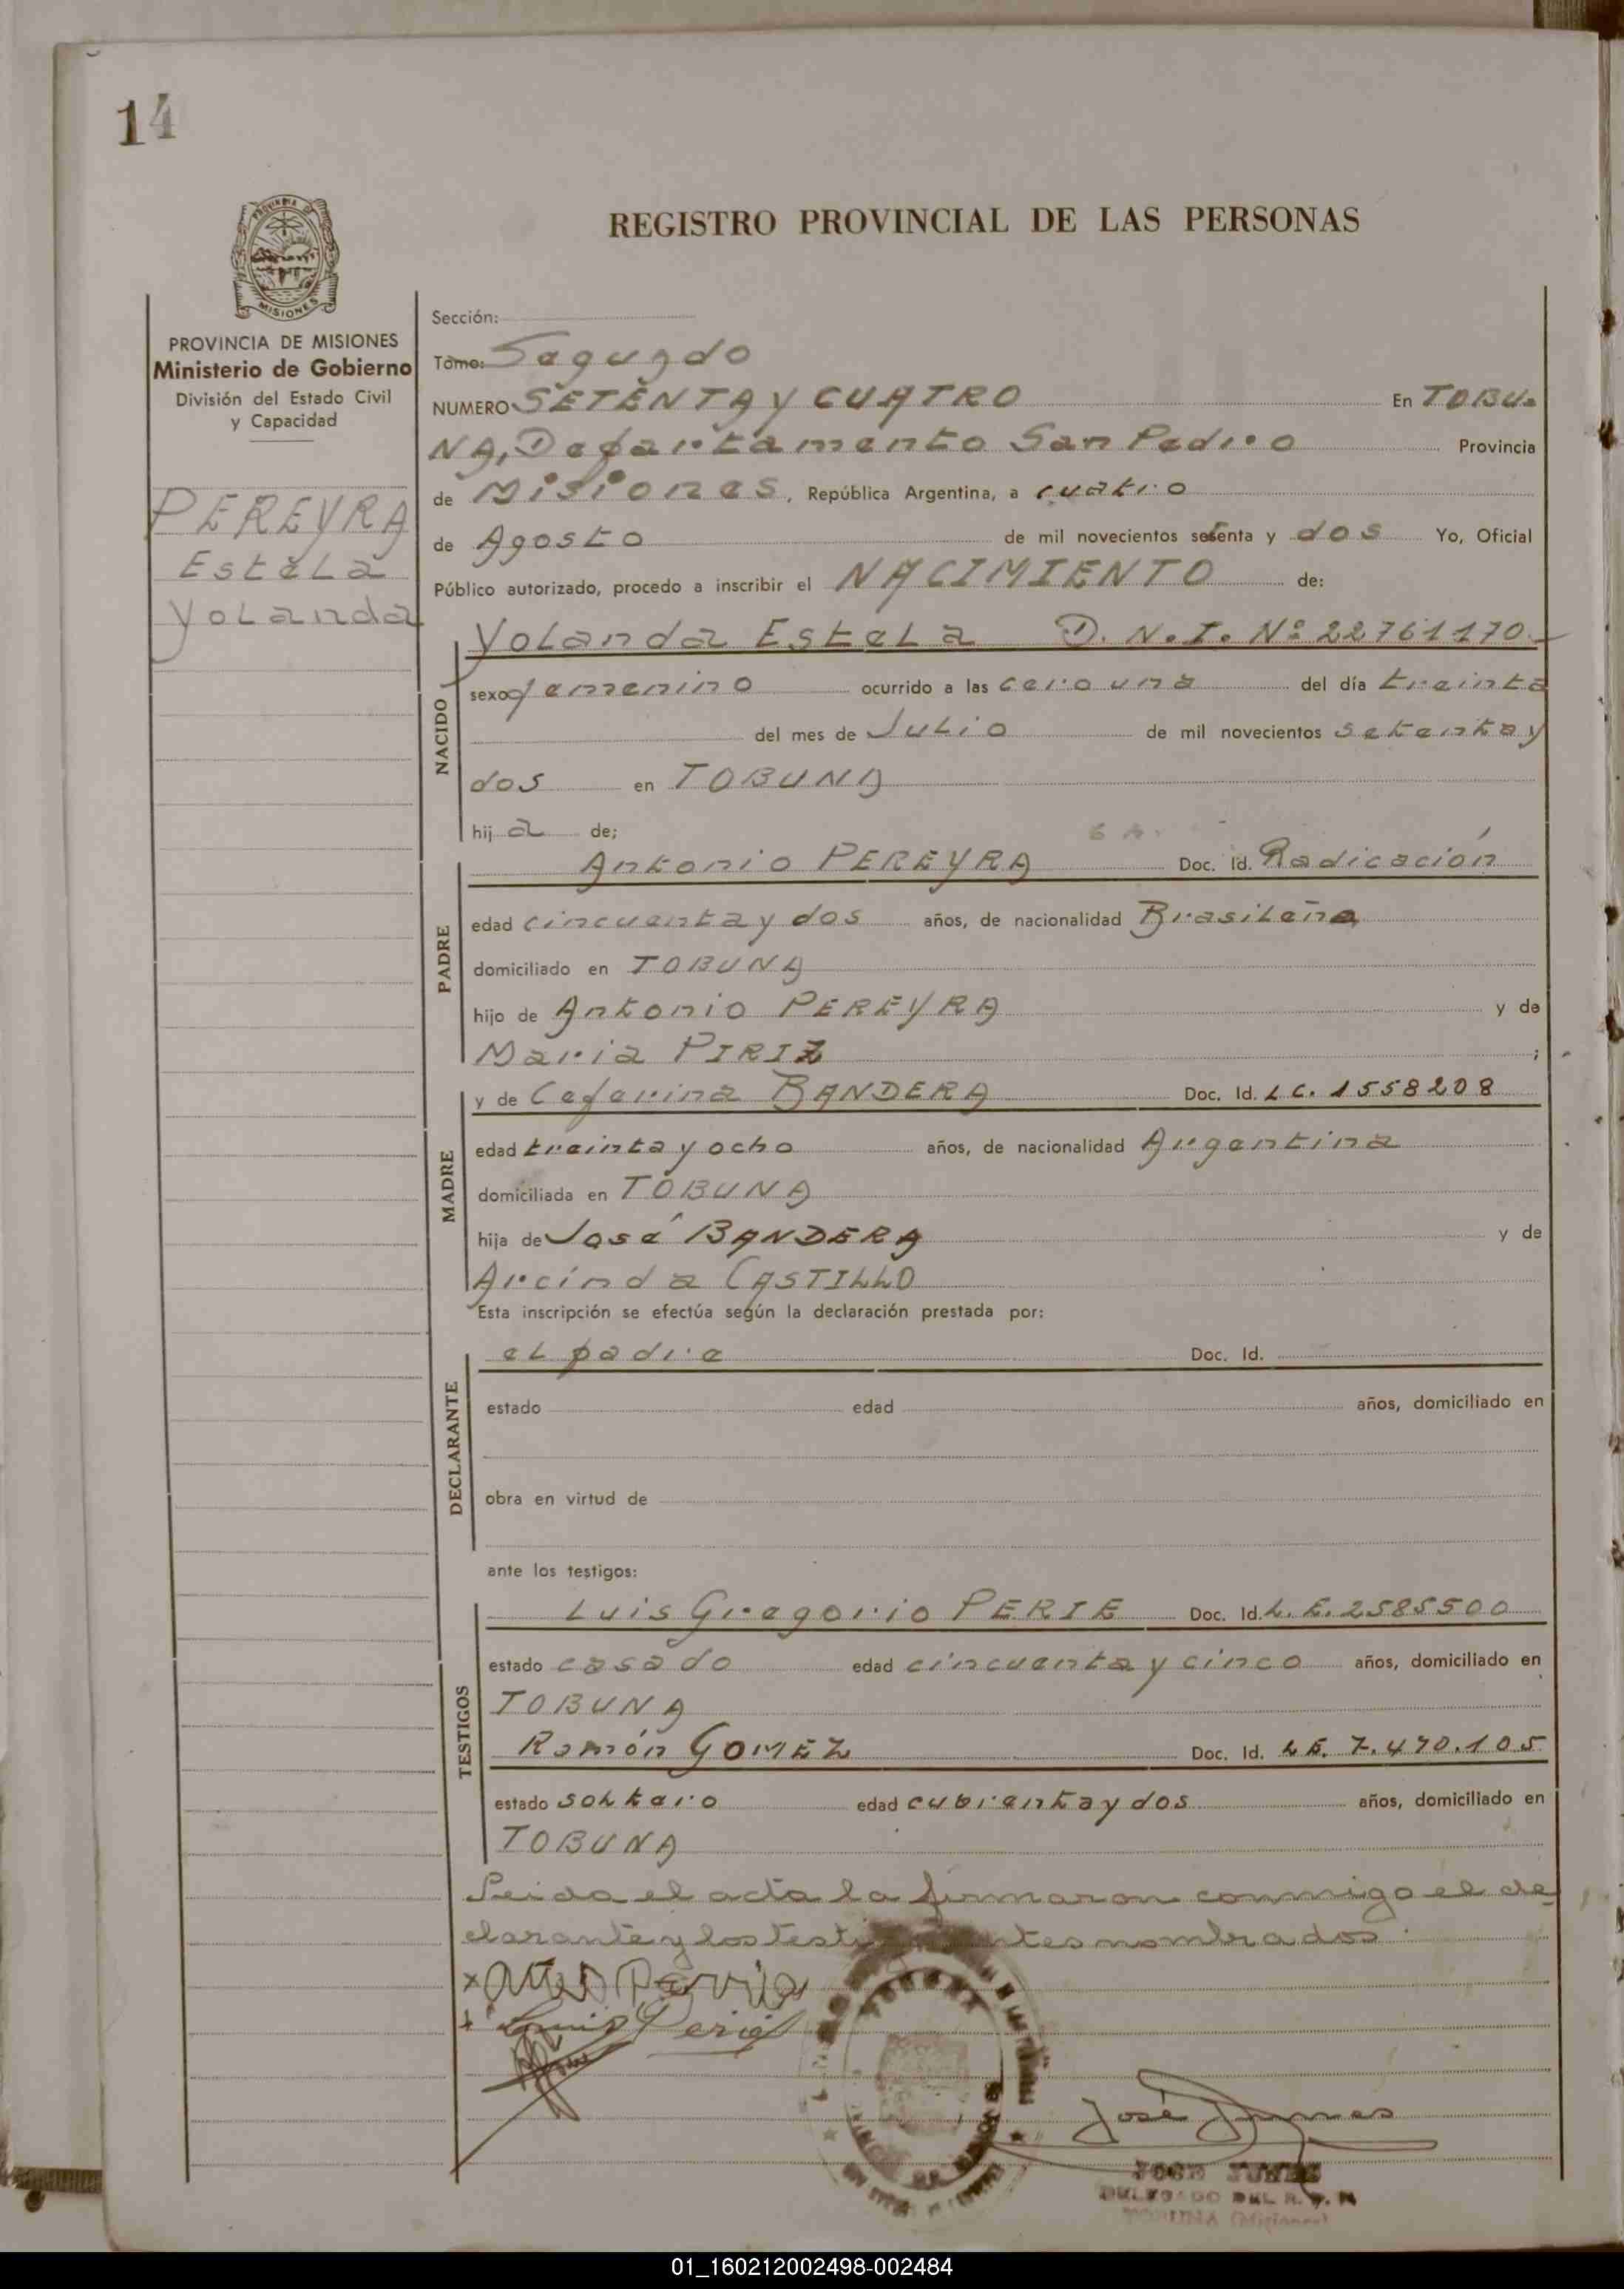 14
PROVINCIA DE MISIONES
Ministerio de Gobierno
División del Estado Civil
y Capacidad
PEREYRA
Estela
Yolanda
REGISTRO PROVINCIAL DE LAS PERSONAS
Sección:
Tomo: Segundo
NUMERO SETENTA Y CUATRO En TOBU-
NA, Departamento San Pedro Provincia
de Misiones, República Argentina, a cuatro
de Agosto de mil novecientos setenta y dos Yo, Oficial
Público autorizado, procedo a inscribir el NACIMIENTO de:
NACIDO
Yolanda Estela D. N. I. Nº 22761170
sexo femenino ocurrido a las cero una del día treinta
del mes de Julio de mil novecientos setenta y
dos en TOBUNA
hija de;
PADRE
Antonio PEREYRA Doc. Id. Radicación
edad cincuenta y dos años, de nacionalidad Brasileña
domiciliado en TOBUNA
hijo de Antonio PEREYRA y de
Maria PIRIZ ;
MADRE
y de Ceferina BANDERA Doc. Id. LC. 1558208
edad treinta y ocho años, de nacionalidad Argentina
domiciliada en TOBUNA
hija de José BANDERA y de
Arcinda CASTILLO
Esta inscripción se efectúa según la declaración prestada por:
DECLARANTE
el padre Doc. Id.
estado edad años, domiciliado en
obra en virtud de
ante los testigos:
TESTIGOS
Luis Gregorio PERIE Doc. Id. L. E. 2585500
estado casado edad cincuenta y cinco años, domiciliado en
TOBUNA
Ramón GOMEZ Doc. Id. LE. 7.470.105
estado soltero edad cuarenta y dos años, domiciliado en
TOBUNA
Leida el acta la firmaron conmigo el de-
clarante y los testi antes nombrados
Luis Perié
José
JOSE
DELEGADO DEL R. P. P.
TOBUNA (Misiones)
01_160212002498-002484